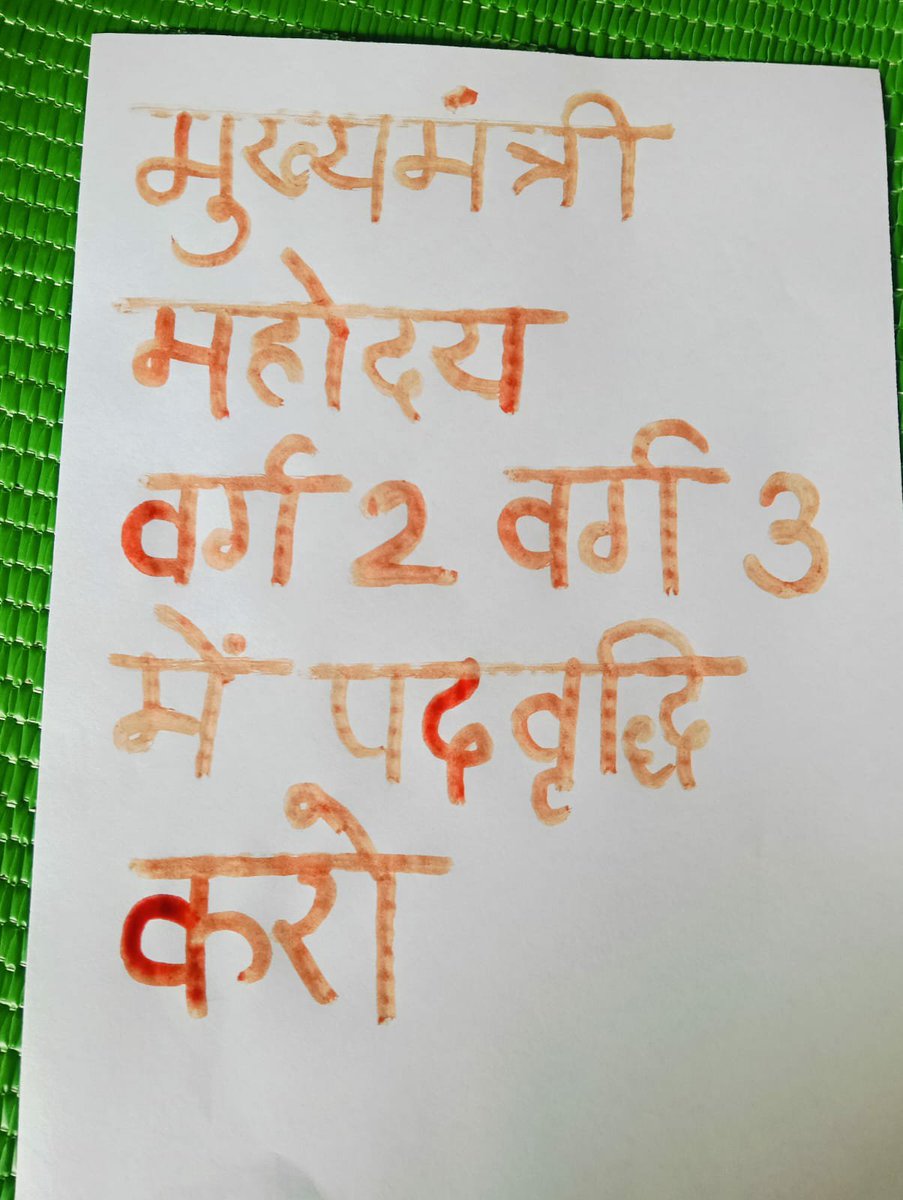 मुख्यमंत्री
महोदय
वर्ग 2 वर्ग 3
में पदवृद्धि
करो